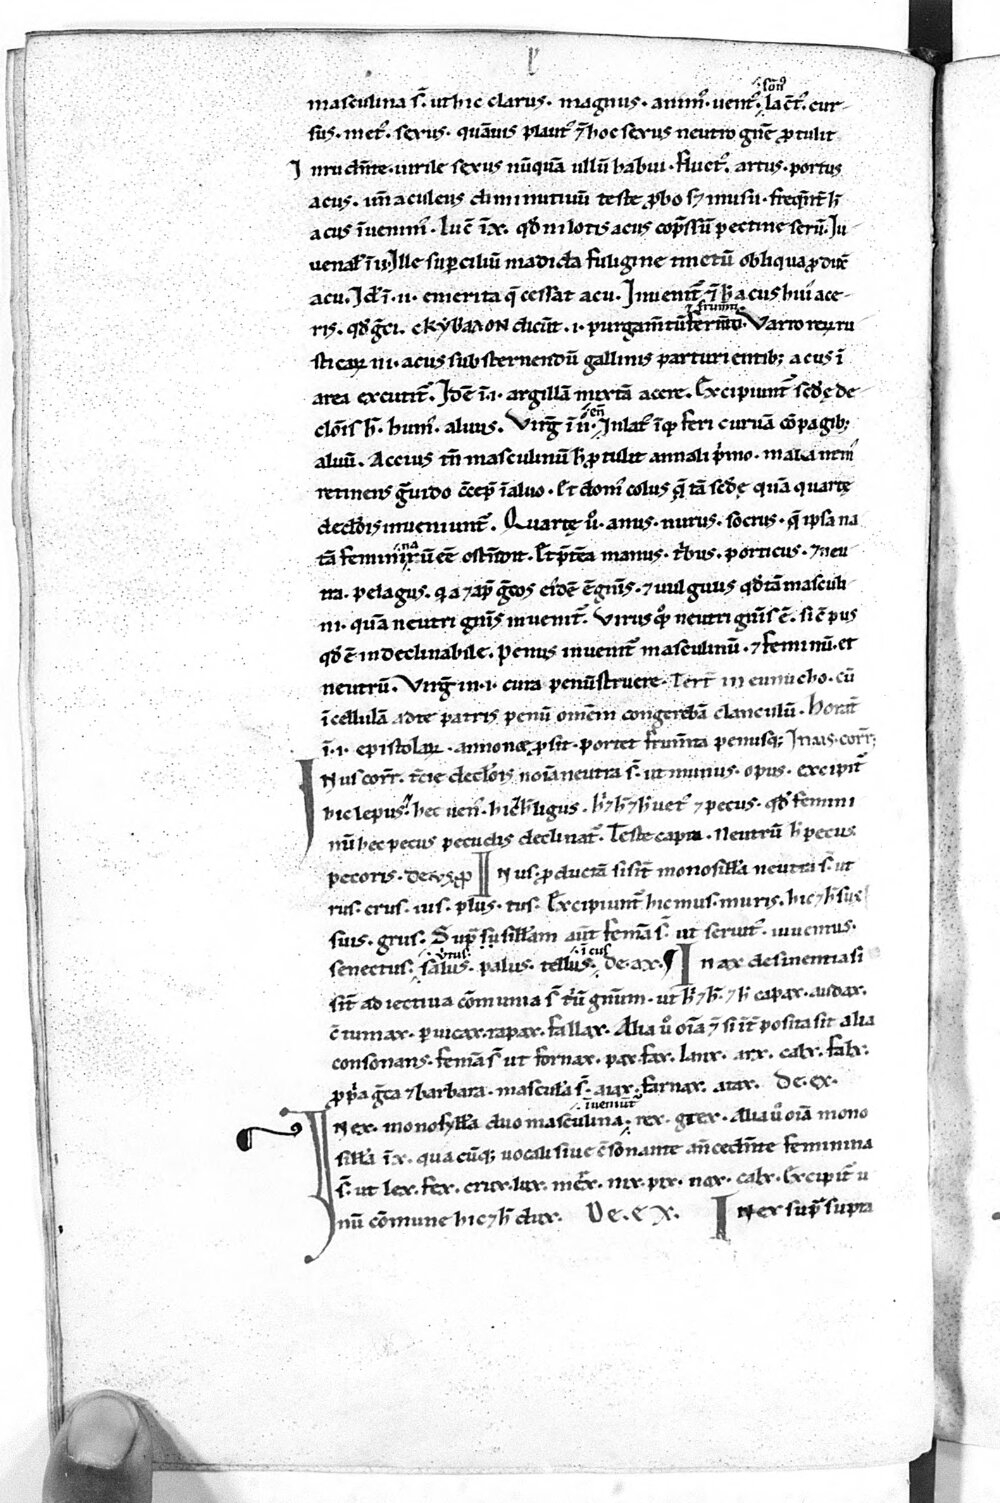 masculina s̄. ut hic clarus. magnus. anim᷒. uent᷒. lact᷒. cur-
sus. met᷒. sexus. quāuis plaut᷒ ⁊ hoc sexus neutro gn̄e ꝓtulit
In rudn̄te. uirile sexus nūquā ullū habui. fluct᷒. artus. portus
acus. un̄ aculeus diminutiuū teste ꝓbo ⁊ musu. freqn̄t h̄
acus īuenim᷒. luc̄ īx. qd̄ nilotis acus cop̄ssū pectine serū. Iu
uenal̄ ī.ii. Ille superciliū madida fuligine tinctū obliqua ꝓduc̄
acu. Id̄ ī.ii. emerita q̄ cessat acu. Inuenit̄ ⁊ h̄ acus hui᷒ ace-
ris. qd̄ gc̄i. cKyBaΛON dicūt. .i. purgam̄tū frum̄ti. Varro rerū ru
sticaꝝ .iii. acus substernendū gallinis parturientib; acus ī
area excutit᷒. Idē ī.i. argillā mixtā acere. Excipiunt᷒ sed̄ę de
clōis h̄. hum᷒. aluus. Virḡ ī.ii. Inlat᷒ ī feri curuā cōpagib;
aluū. Accius tn̄ masculinū h̄ ꝓtulit annali p̄mo. mala ntm᷒
retinens guido cc̄ep̄ ī aluo. Et dom᷒ colus q̄ tā sed̄ę quā quartę
declōis inueniunt᷒. Quartę u᷒. anus. nurus. socrus. q̄ ipsa na
tā femininū eē ostn̄dit. Et p̄tea manus. tribus. porticus. ⁊ neu
tra. pelagus. qa ⁊ ap̄ gc̄os ei᷒dē ē gn̄is. ⁊ uulguus qd̄ tā masculi
ni. quā neutri gn̄is inuenit᷒. Virus quoq᷒ neutri gn̄is ē. sic̄ pus
qd̄ ē indeclinabile. Penus inuenit᷒ masculinū. ⁊ feminū. et
neutrū. Virḡ in.i. cura penū struere. Tert̄ in eunucho. cū
ī cellulā ad te patris penū om̄em congerebā clanculū. Horat̄
ī.i. epistolaꝝ. annonæ ꝓsit. portet frum̄ta penusq; In us. corr̄;
In us corr̄. tc̄ie declōis noīa neutra s̄. ut munus. opus. excipit᷒
hic lepus. hec uen᷒. hic ⁊ h̄ ligus. h᷒ ⁊ h̄ ⁊ h̄ uet᷒ ⁊ pecus. qd̄ femini
nū hec pecus pecudis declinat᷒. Teste capra. Neutrū h̄ pecus
pecoris. de us ꝓ In us. ꝓductā si sit̄ monosill̄a neutra s̄. ut
rus. crus. ius. plus. tus. Excipiunt᷒ hic mus. muris. hic ⁊ h̄ sus
suis. grus. Sup̄ sillam aut̄ femā s̄. ut seruit᷒. iuuentus.
senectus. salus. palus. tellus. de. ax. ¶ In ax desinentia si
sit̄ adiectiua cōmunia s̄ triū gn̄um. ut h᷒ ⁊ h̄ ⁊ h̄ capax. audax.
c̄tumax. p̄uicax. rapax. fallax. Alia u᷒ oīa ⁊ si īt̄posita sit alia
consonans. femā s̄ ut fornax. pax. fax. lanx. arx. calx. falx.
ꝓp̄a gc̄a ⁊ barbara. mascula s̄. aiax. farnax. atax. De. ex.
In ex. monosyll̄a duo masculina īueniūt᷒. rex. grex. Alia u᷒ oīa mono
sill̄a ī x. qua cūq; uocali siue c̄sonante an̄cedn̄te feminina
s̄. ut lex. fex. crux. lux. merx. nix. pix. nox. calx. Excipit᷒ u
nū cōmune hic ⁊ h̄ dux. De. ex. In ex sup̄ supra